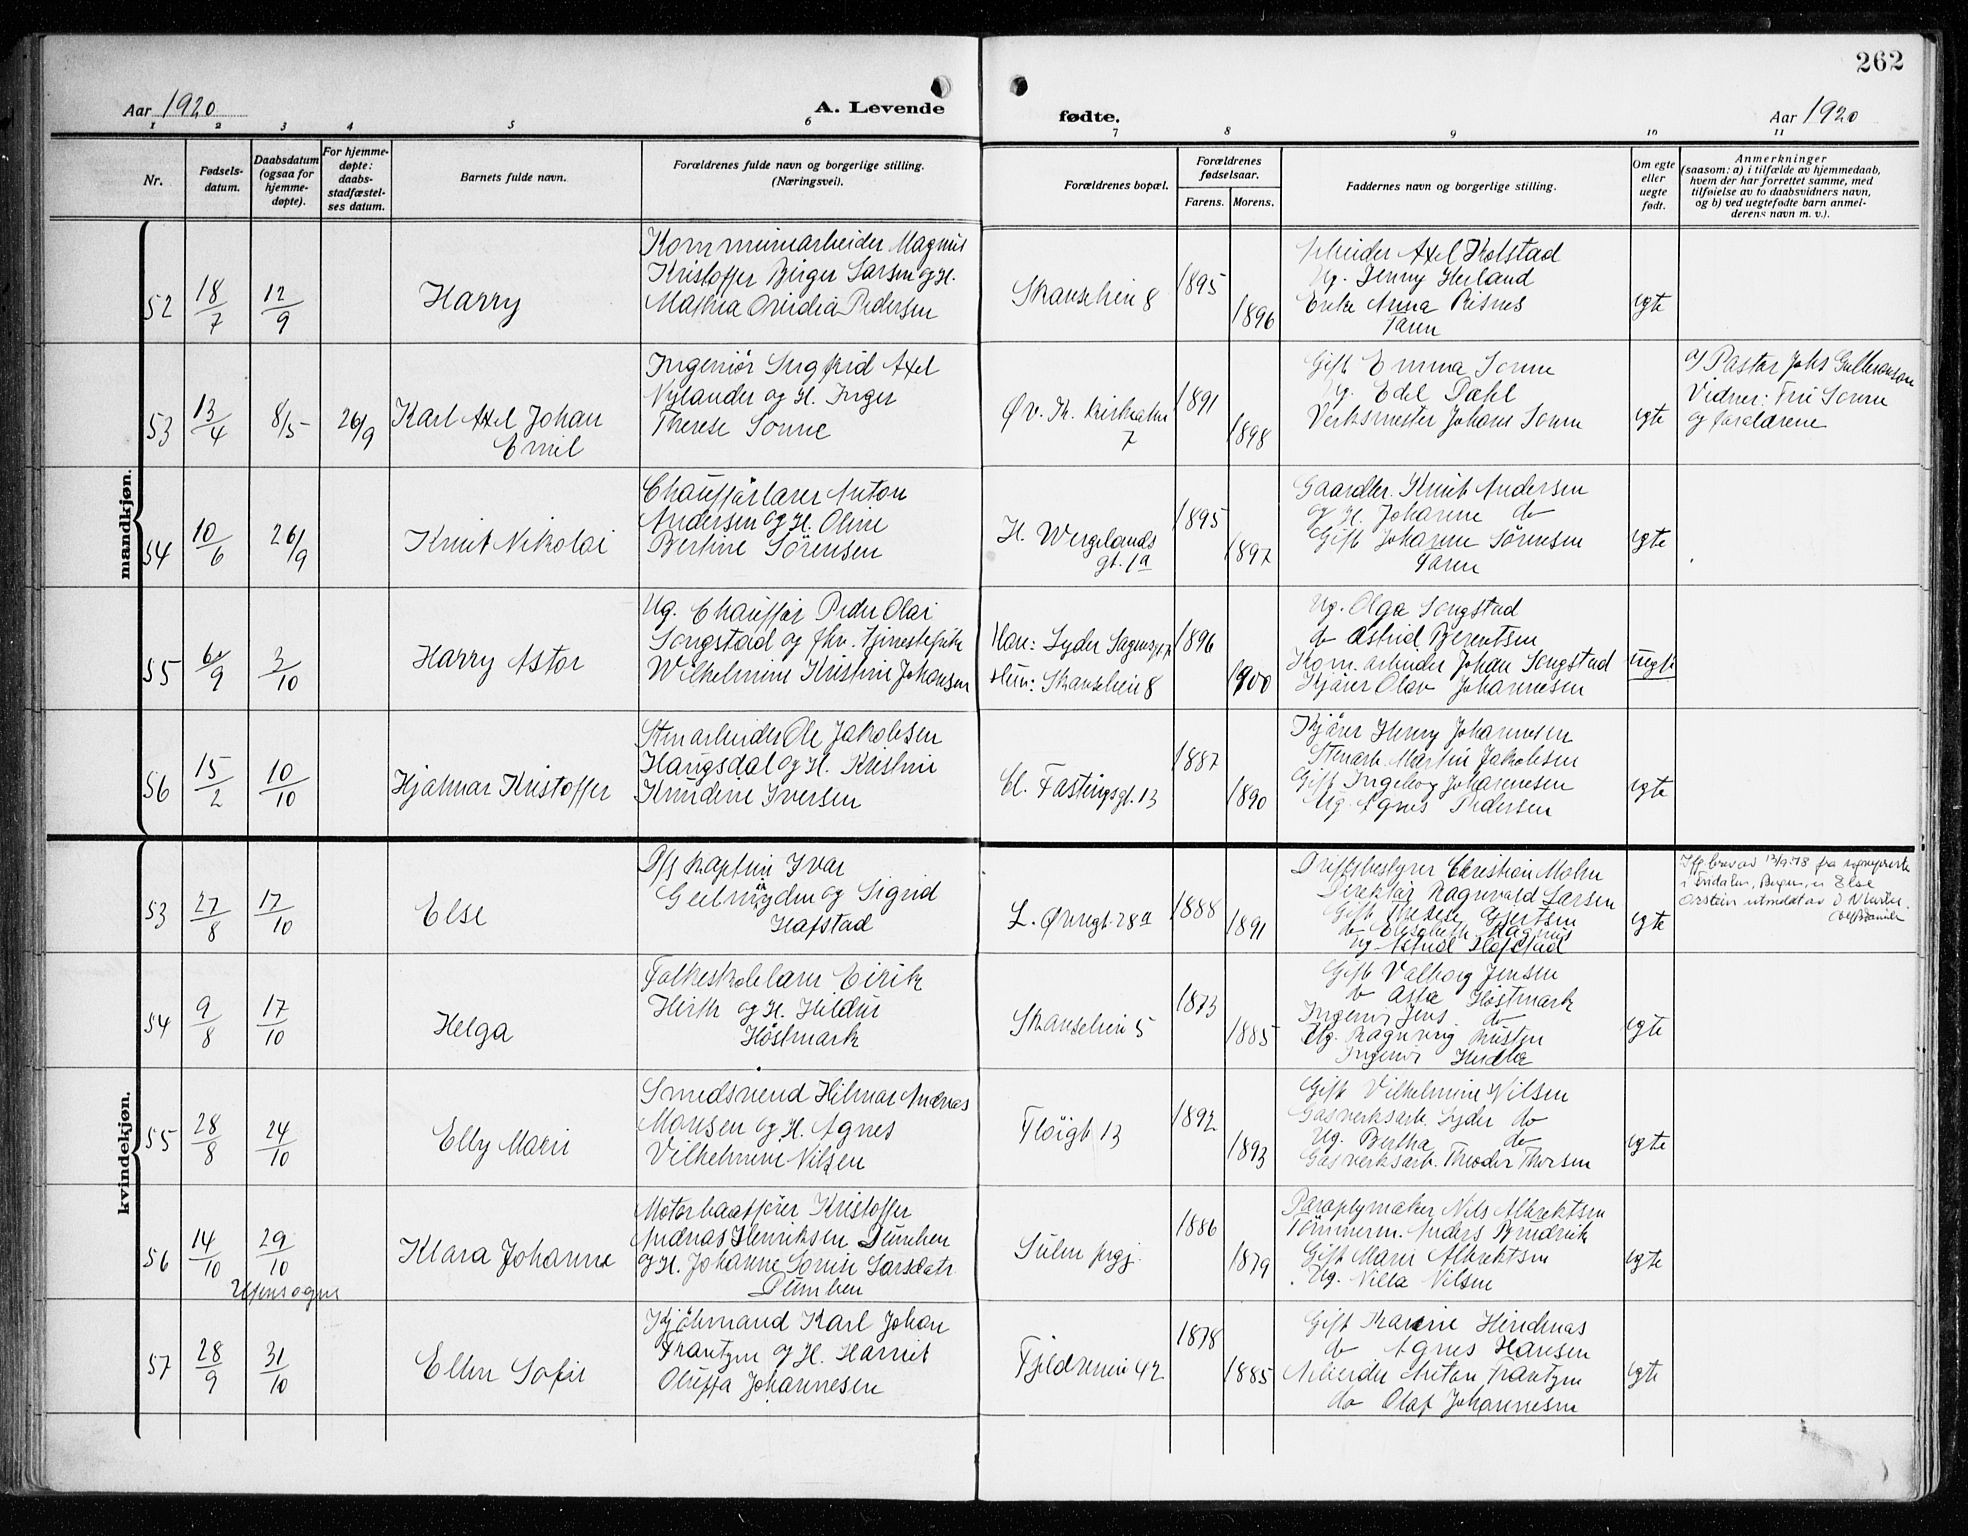 262
Aar 1920
A. Levende
fødte.
Aar 1920
1 2 3 4 5 6 7 8 9 10 11
Nr.
Fødsels-
datum.
Daabsdatum
(ogsaa for
hjemme-
døpte).
For hjemme-
døpte:
daabs-
stadfæstel-
ses datum.
Barnets fulde navn.
Forældrenes fulde navn og borgerlige stilling.
(Næringsvei).
Forældrenes bopæl.
Forældrenes
fødselsaar.
Farens. Morens.
Faddernes navn og borgerlige stilling.
Om egte
eller
uegte
født.
Anmerkninger
(saasom: a) i tilfælde av hjemmedaab,
hvem der har forrettet samme, med
tilføielse av to daabsvidners navn,
og b) ved uegtefødte barn anmel-
derens navn m. v.).
mandkjøn.
52
18/7
12/9
Harry
Kommunearbeider Magnus
Kristoffer Birger Larsen og H.
Mathea Ovidia Pedersen
Skansevein 8
1895
1896
Arbeider Axel Kolstad
Ug. Jenny Heiland
Enke Anna Risnes
Faren
egte
53
13/4
8/5
26/9
Karl Axel Johan
Emil
Ingeniør Sigfrid Axel
Nylander og H. Inger
Therese Sonne
Øv. K. Kirkealm
7
1891
1898
Gift Emma Sonne
Ug. Edel Dahl
Verksmester Johans Sonne
egte
Pastor Johs
Vidner: Fru Sonne
og forældrene
54
10/6
26/9
Knut Nikolai
Chaufførlærer Anton
Andersen og H. Oline
Bertine Sørensen
H. Wergelands
gt. 1a
1895
1897
Gaardbr. Knut Andersen
og H. Johanne do
Gift Johanne Sørensen
Faren
egte
55
6/9
3/10
Harry Astor
Ug. Chauffør Peder Olai
Songstad og fhv. tjenestepike
Wilhelmine Kristine Johansen
Han: Lyder Sagensgt
Hun: Skansevein 8
1896
1900
Ug. Olga Songstad
do Astrid Berentsen
Kom. arbeider Johan Songstad
Kjører Olav Johannesen
uegte
56
15/2
10/10
Hjalmar Kristoffer
Stenarbeider Ole Jakobsen
Haugsdal og H. Kristine
Knudine Iversen
Cl. Fastingsgt. 13
1887
1890
Kjører Henry Johannesen
Stenarb. Martin Jakobsen
Gift Ingeborg Johannesen
Ug. Agnes Pedersen
egte
kvindekjøn.
53
27/8
17/10
Else
D/s kaptein Ivar
Geelmuyden og Sigrid
Hafstad
L. Øvregt. 28a
1888
1891
Driftsbestyrer Christian Mohn
Direktør Ragnvald Larsen
Gift Therese Gjertsen
do Elisabeth Magnus
Ug Astrid Hafstad
egte
Iflg brev av 13/9-78 fra sogneprest
i Fridalen, Bergen, er Else
utmeldt av D. N. kirke.
54
9/8
17/10
Helga
Folkeskolelærer Eirik
Hirth og H. Hildur
Høstmark
Skansevein 5
1873
1885
Gift Valborg Jensen
do Asta Høstmark
Ingeniør Jens do
Ug. Ragnveig
Ingeniør
egte
55
28/8
24/10
Elly Marie
Smedsvend Hilmar Andreas
Monsen og H. Agnes
Vilhelmine Nilsen
Fløigt 13
1892
1893
Gift Vilhelmine Nilsen
Gasverksarb. Lyder do
Ug. Bertha do
Gasverksarb. Theodor Thorsen
egte
56
14/10
29/10
Utensogns
Klara Johanne
Motorbaatfører Kristoffer
Andreas Henriksen Dumben
og H. Johanne Sonise Larsdatr.
Dumben
Sulen prgj.
1886
1879
Paraplymaker Nils Albrektsen
Tømmerm. Anders
Gift Marie Albrektsen
Ug. Villa Nilsen
egte
57
28/9
31/10
Ellen Sofie
Kjøbmand Karl Johan
Frantzen og H. Harriet
Oluffa Johannesen
Fjeldveien 42
1878
1885
Gift Karine Hindenas
do Agnes Hansen
Arbeider Anton Frantzen
do Olaf Johannesen
egte